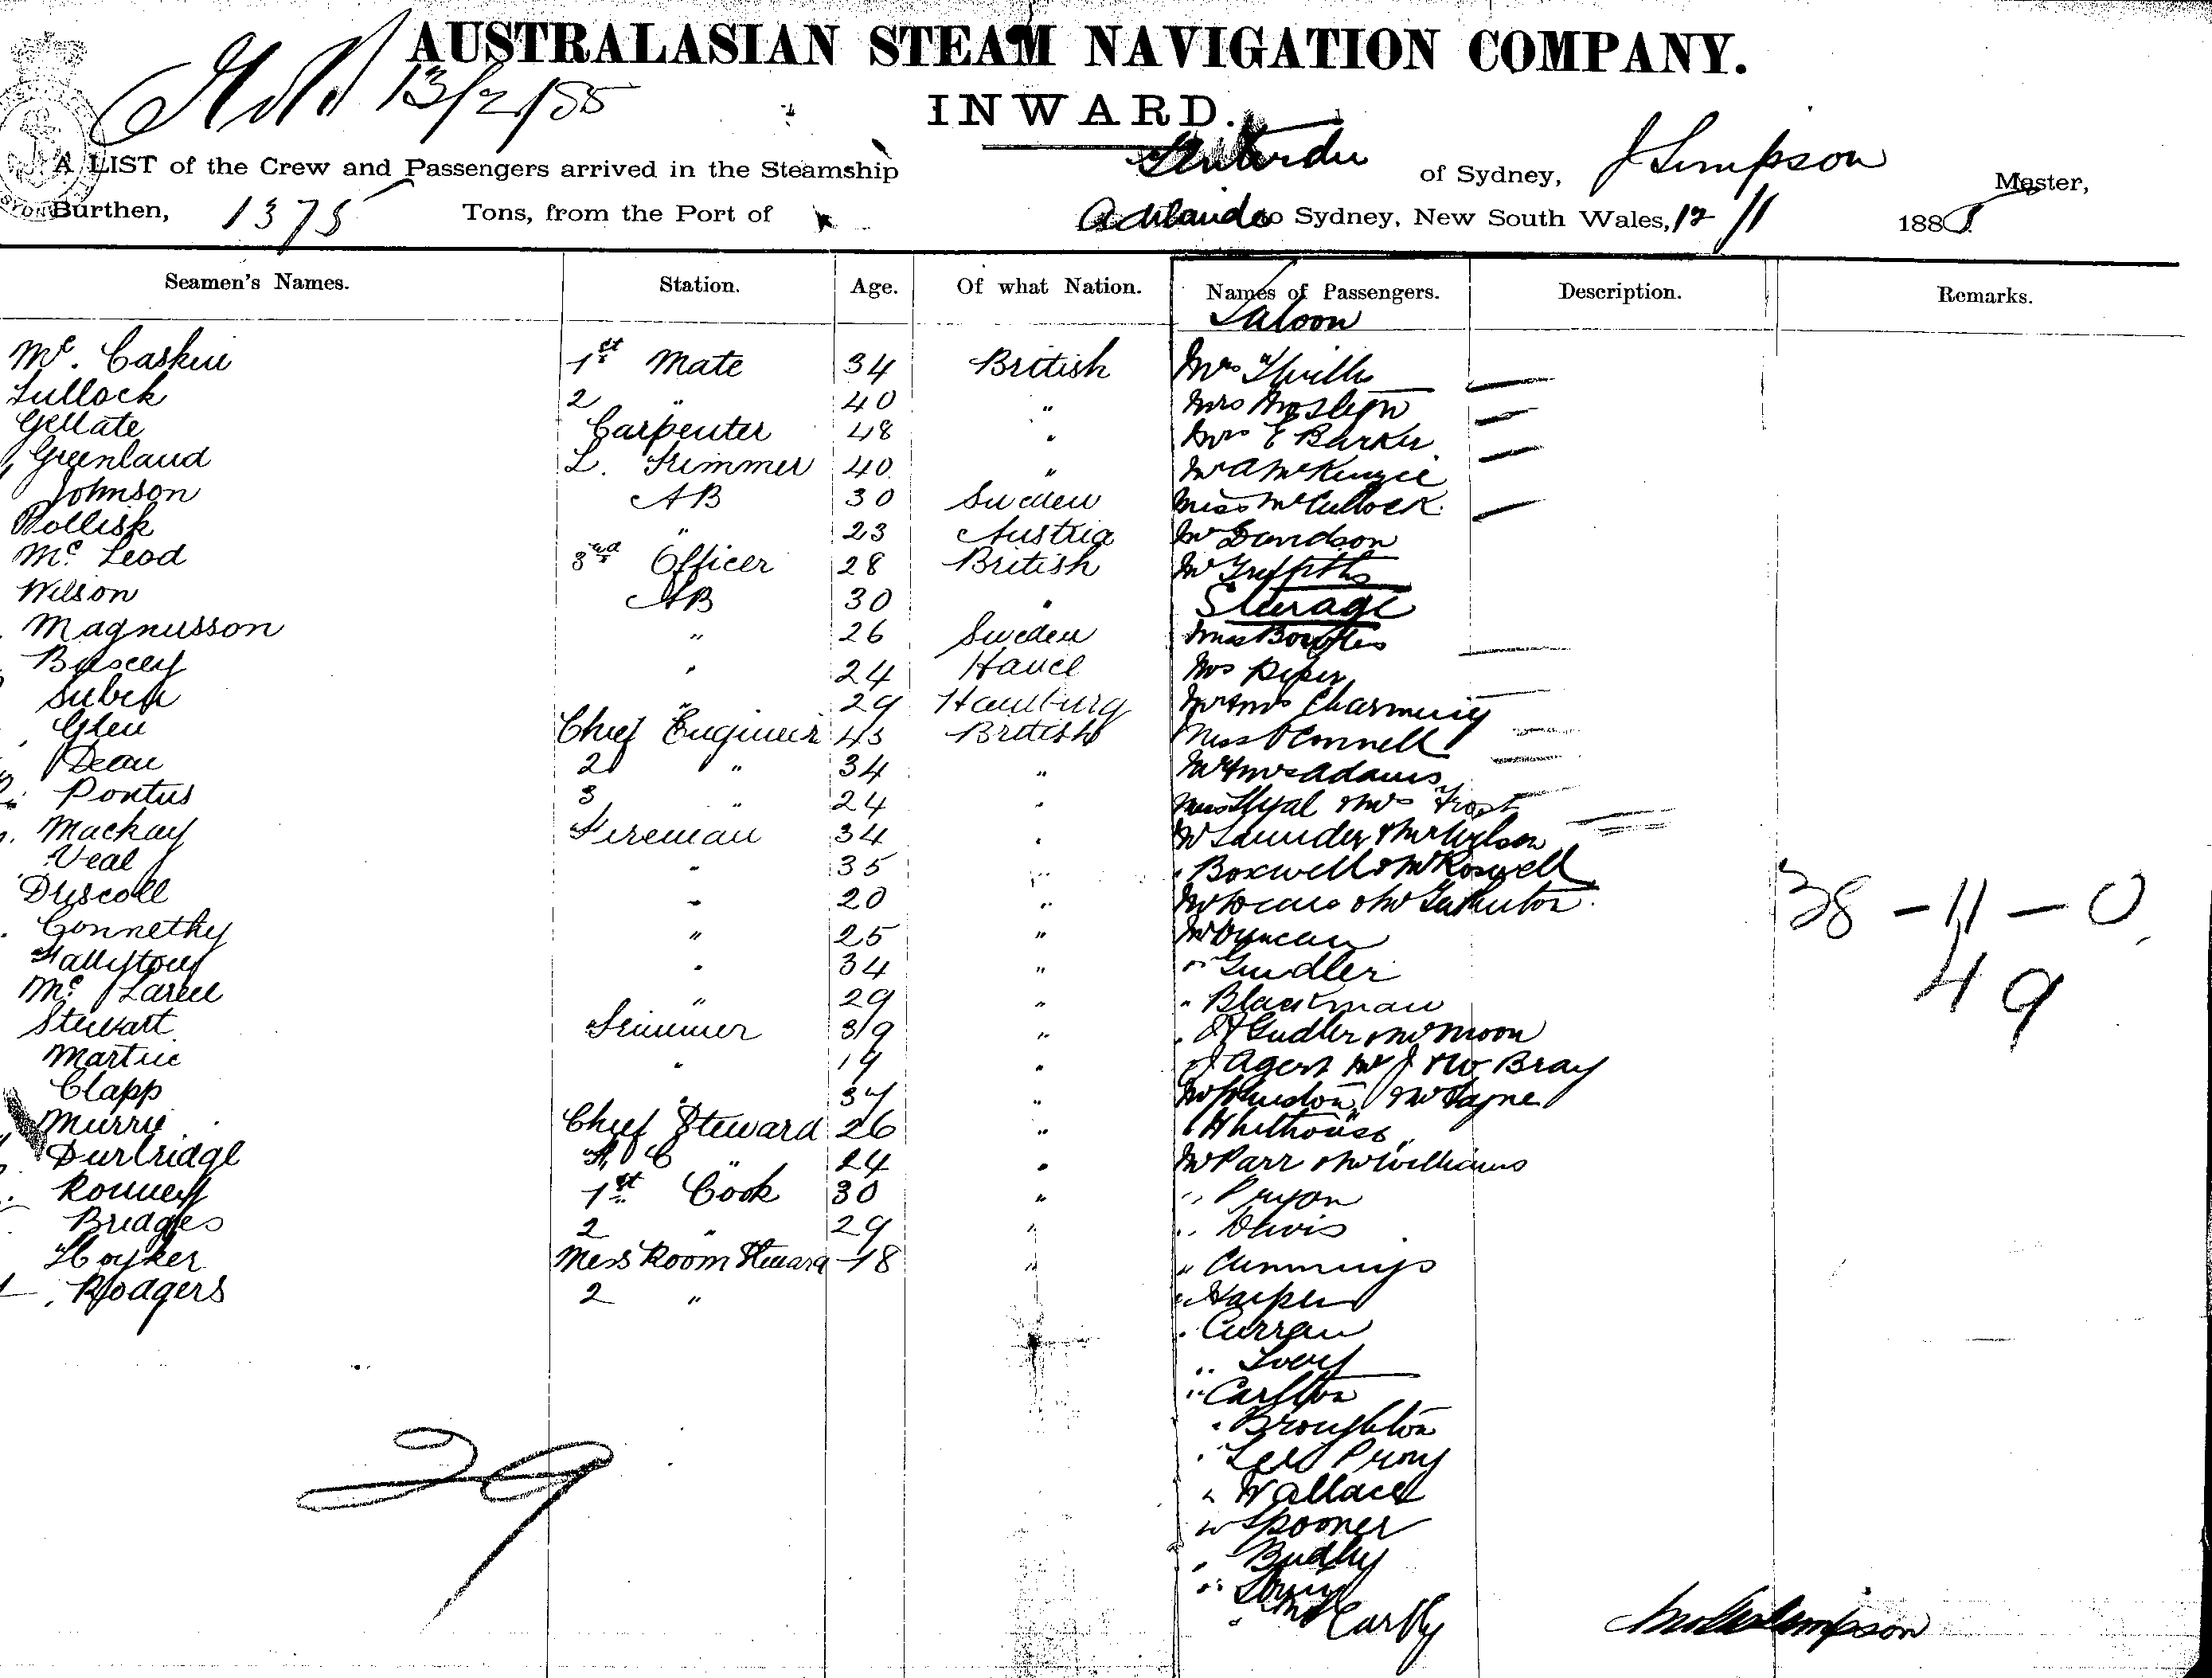 AUSTRALASIAN STEAM NAVIGATION COMPANY.
13/2/85
INWARD.
A LIST of the Crew and Passengers arrived in the Steamship of Sydney, J Simpson Master,
Burthen, 1375 Tons, from the Port of Adelaide to Sydney, New South Wales, 12/11 188
Seamen's Names. Station. Age. Of what Nation. Names of Passengers. Description. Remarks.
Saloon
Mc. Caskie 1st Mate 34 British Mrs
Tullock 2 " 40 " Mrs
Gellate Carpenter 48 " Mrs E Barker
Greenland L. Trimmer 40 " Mr A McKenzie
Johnson AB 30 Sweden Miss McCullock
Pollisk " 23 Austria Mr Davidson
Mc. Leod 3rd Officer 28 British Mr Griffiths
Wilson AB 30 " Steerage
Magnusson " 26 Sweden Miss Bowles
" 24 Mrs Piper
29 Hamburg Mr & Mrs Charmung
Glen Chief Engineer 43 British Miss O'Connell
Dean 2 " 34 " Mr & Mrs Adams
Pontus 3 " 24 " & Mrs Frost
Mackay Fireman 34 " Mr Saunder & Mr Wilson
Veal " 35 " " Boxwell & Mr Roswell
Driscoll " 20 " Mr
Connethy " 25 " Mr Duncan
" 34 " " Gudler
Mc. Laren " 29 " " Blackman
Stewart Trimmer 39 " " Gudler & Mr Moon
Martin " 19 " " J Agert Mr J & W Bray
Clapp " 34 " Mr Johnston & Mr Payne
Murrie Chief Steward 26 " " Whithouse
Durbridge " 24 " Mr Parr & Mr Williams
Ronney 1st Cook 30 " " Pryon
Bridges 2 " 29 " " Davis
Hoyker Mess Room Steward 18 " " Cummings
Rodgers 2 " " Harper
" Curran
" Ivery
" Carlton
" Broughton
" Lee Prony
" Wallace
" Spooner
" Budley
McCarthy
38 - 11 - 0
49
29
Simpson